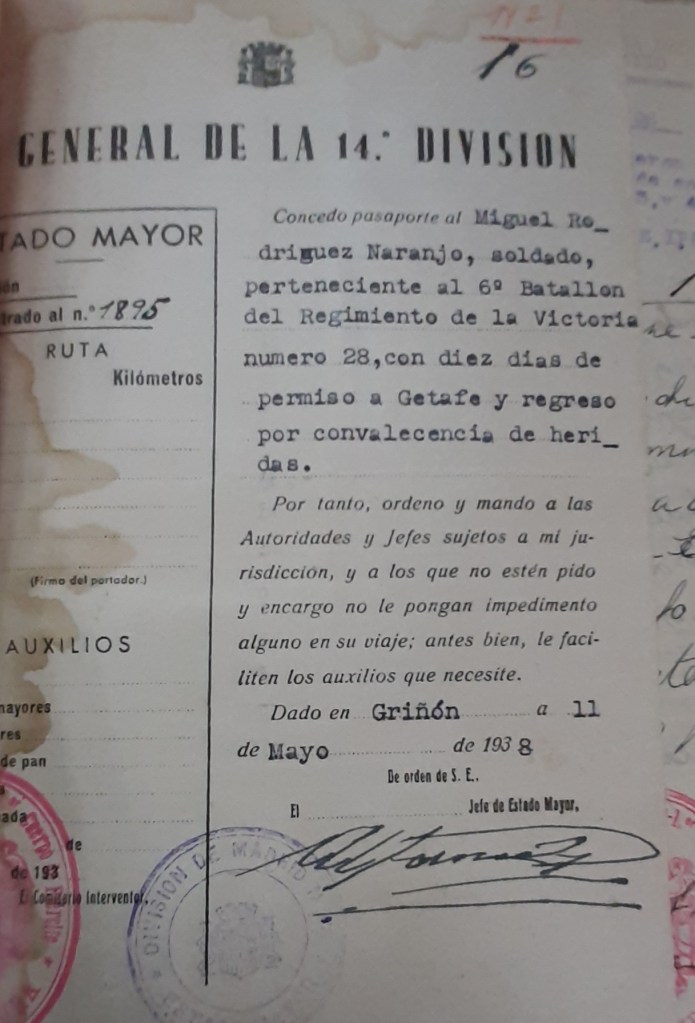 1121
16
GENERAL DE LA 14.ª DIVISION
TADO MAYOR
ón
trado al n.º 1895
RUTA
Kilómetros
(Firma del portador.)
AUXILIOS
mayores
res
de pan
a
ada
de
de 193
El Comisario Interventor,
Concedo pasaporte al Miguel Ro_
driguez Naranjo, soldado,
perteneciente al 6º Batallon
del Regimiento de la Victoria
numero 28,con diez dias de
permiso a Getafe y regreso
por convalecencia de heri_
das.
Por tanto, ordeno y mando a las
Autoridades y Jefes sujetos a mi ju-
risdicción, y a los que no estén pido
y encargo no le pongan impedimento
alguno en su viaje; antes bien, le faci-
liten los auxilios que necesite.
Dado en Griñón a 11
de Mayo de 1938
De orden de S. E.,
El Jefe de Estado Mayor,
DIVISION DE MADRID